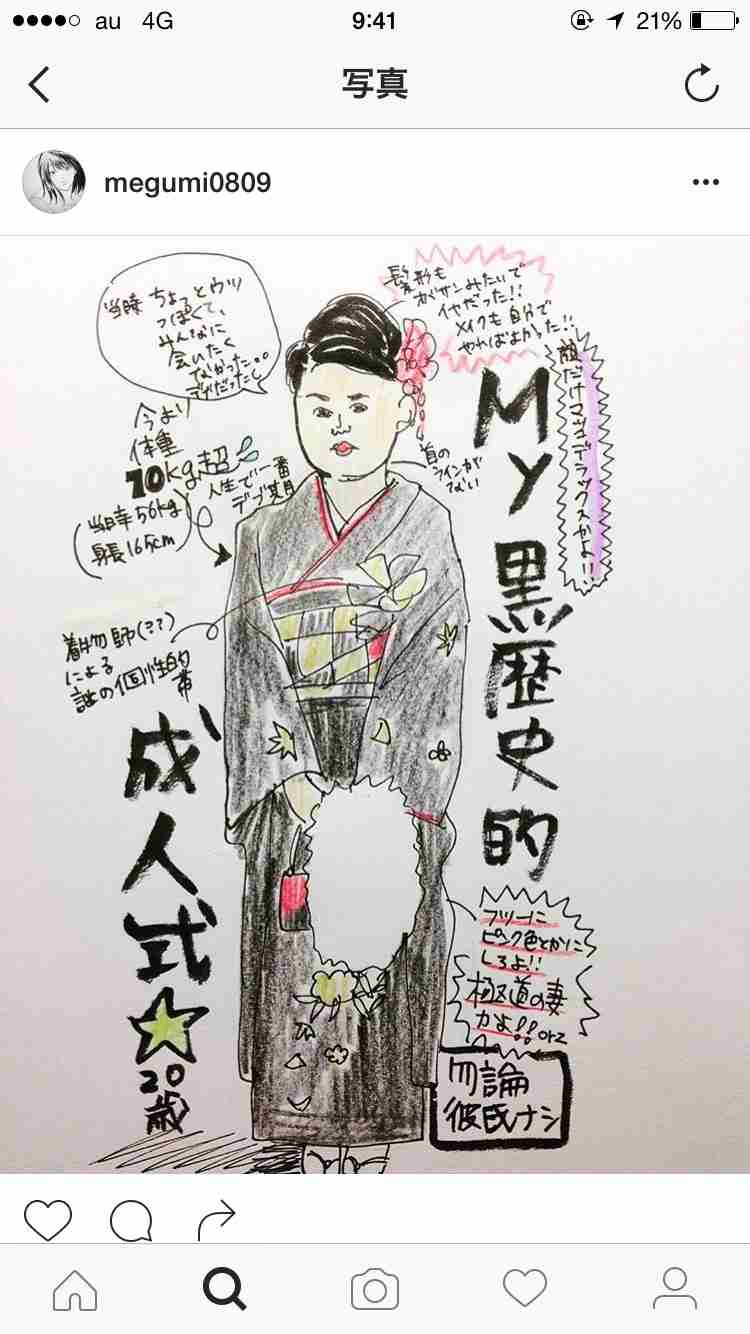 au 4G 9:41 21%
写真
megumi0809
当時 ちょっとウツ
っぽくて、
みんなに
会いたく
なかった。。
デブだったし
髪形も
オバサンみたいで
イヤだった!!
メイクも自分で
やればよかった!!
顔だけマツコデラックスかよ!!
My黒歴史的
今より
体重
10kg超
人生で一番
デブ期
(当時56kg
身長165cm)
首の
ラインが
ない
着物師(??)
による
謎の個性的
帯
成人式
20歳
フツーに
ピンク色とかに
しろよ!!
極道の妻
かよ!!orz
勿論
彼氏ナシ